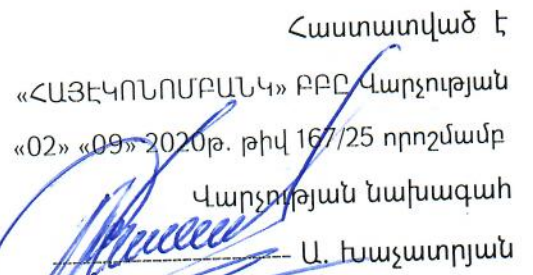 Հաստատված է
«ՀԱՅԷԿՈՆՈՄԲԱՆԿ» ԲԲԸ Վարչության
«02» «09» 2020թ. թիվ 167/25 որոշմամբ
Վարչության նախագահ
---------------------------- Ա. Խաչատրյան